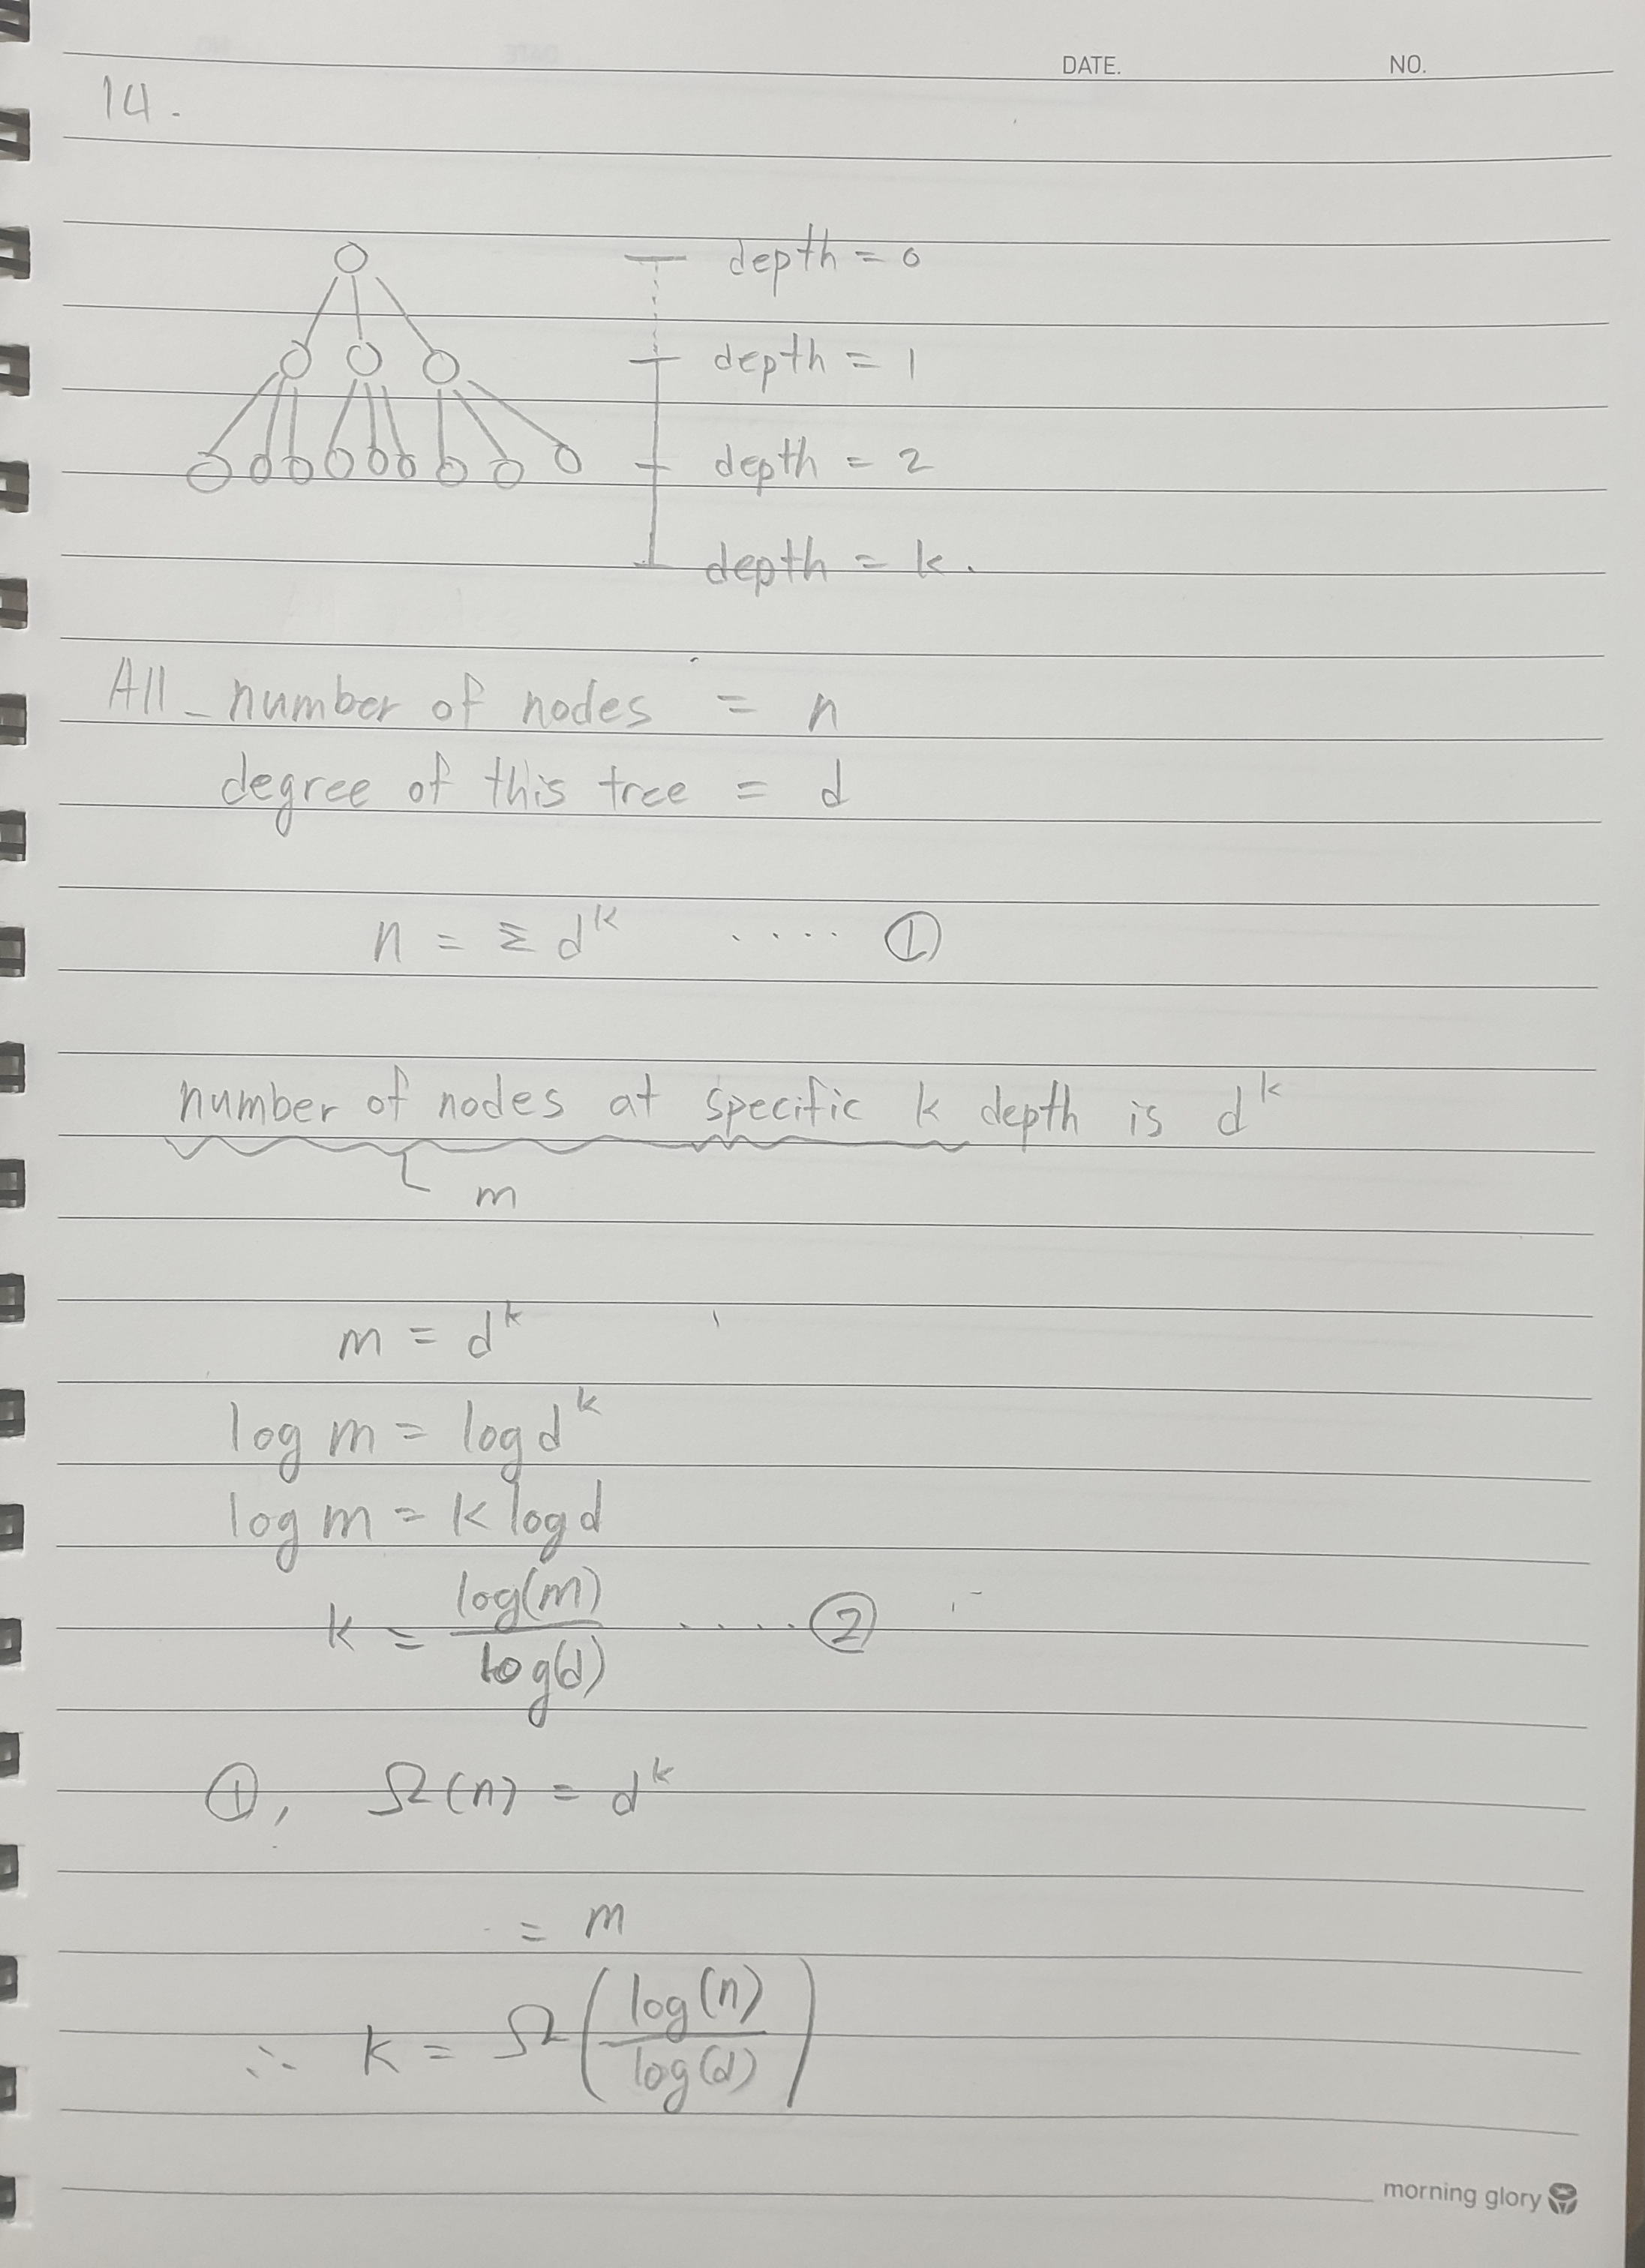 DATE. NO.
14.
depth = 0
depth = 1
depth = 2
depth = k.
All number of nodes = n
degree of this tree = d
n = Σ d^k ···· ①
number of nodes at specific k depth is d^k
m
m = d^k
log m = log d^k
log m = k log d
k = log(m) / log(d) ····· ②
①, Ω(n) = d^k
= m
∴ k = Ω(log(n) / log(d))
morning glory